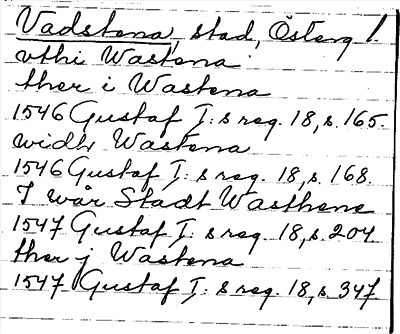 Vadstena, stad, Österg!
vthi Wastena
ther i Wastena
1546 Gustaf I: s reg. 18, s. 165.
widh Wastena
1546 Gustaf I: s reg. 18, s. 168.
I wår Stadt Wasthene
1547 Gustaf I: s reg. 18, s. 204
ther j Wastena
1547 Gustaf I: s reg. 18, s. 347